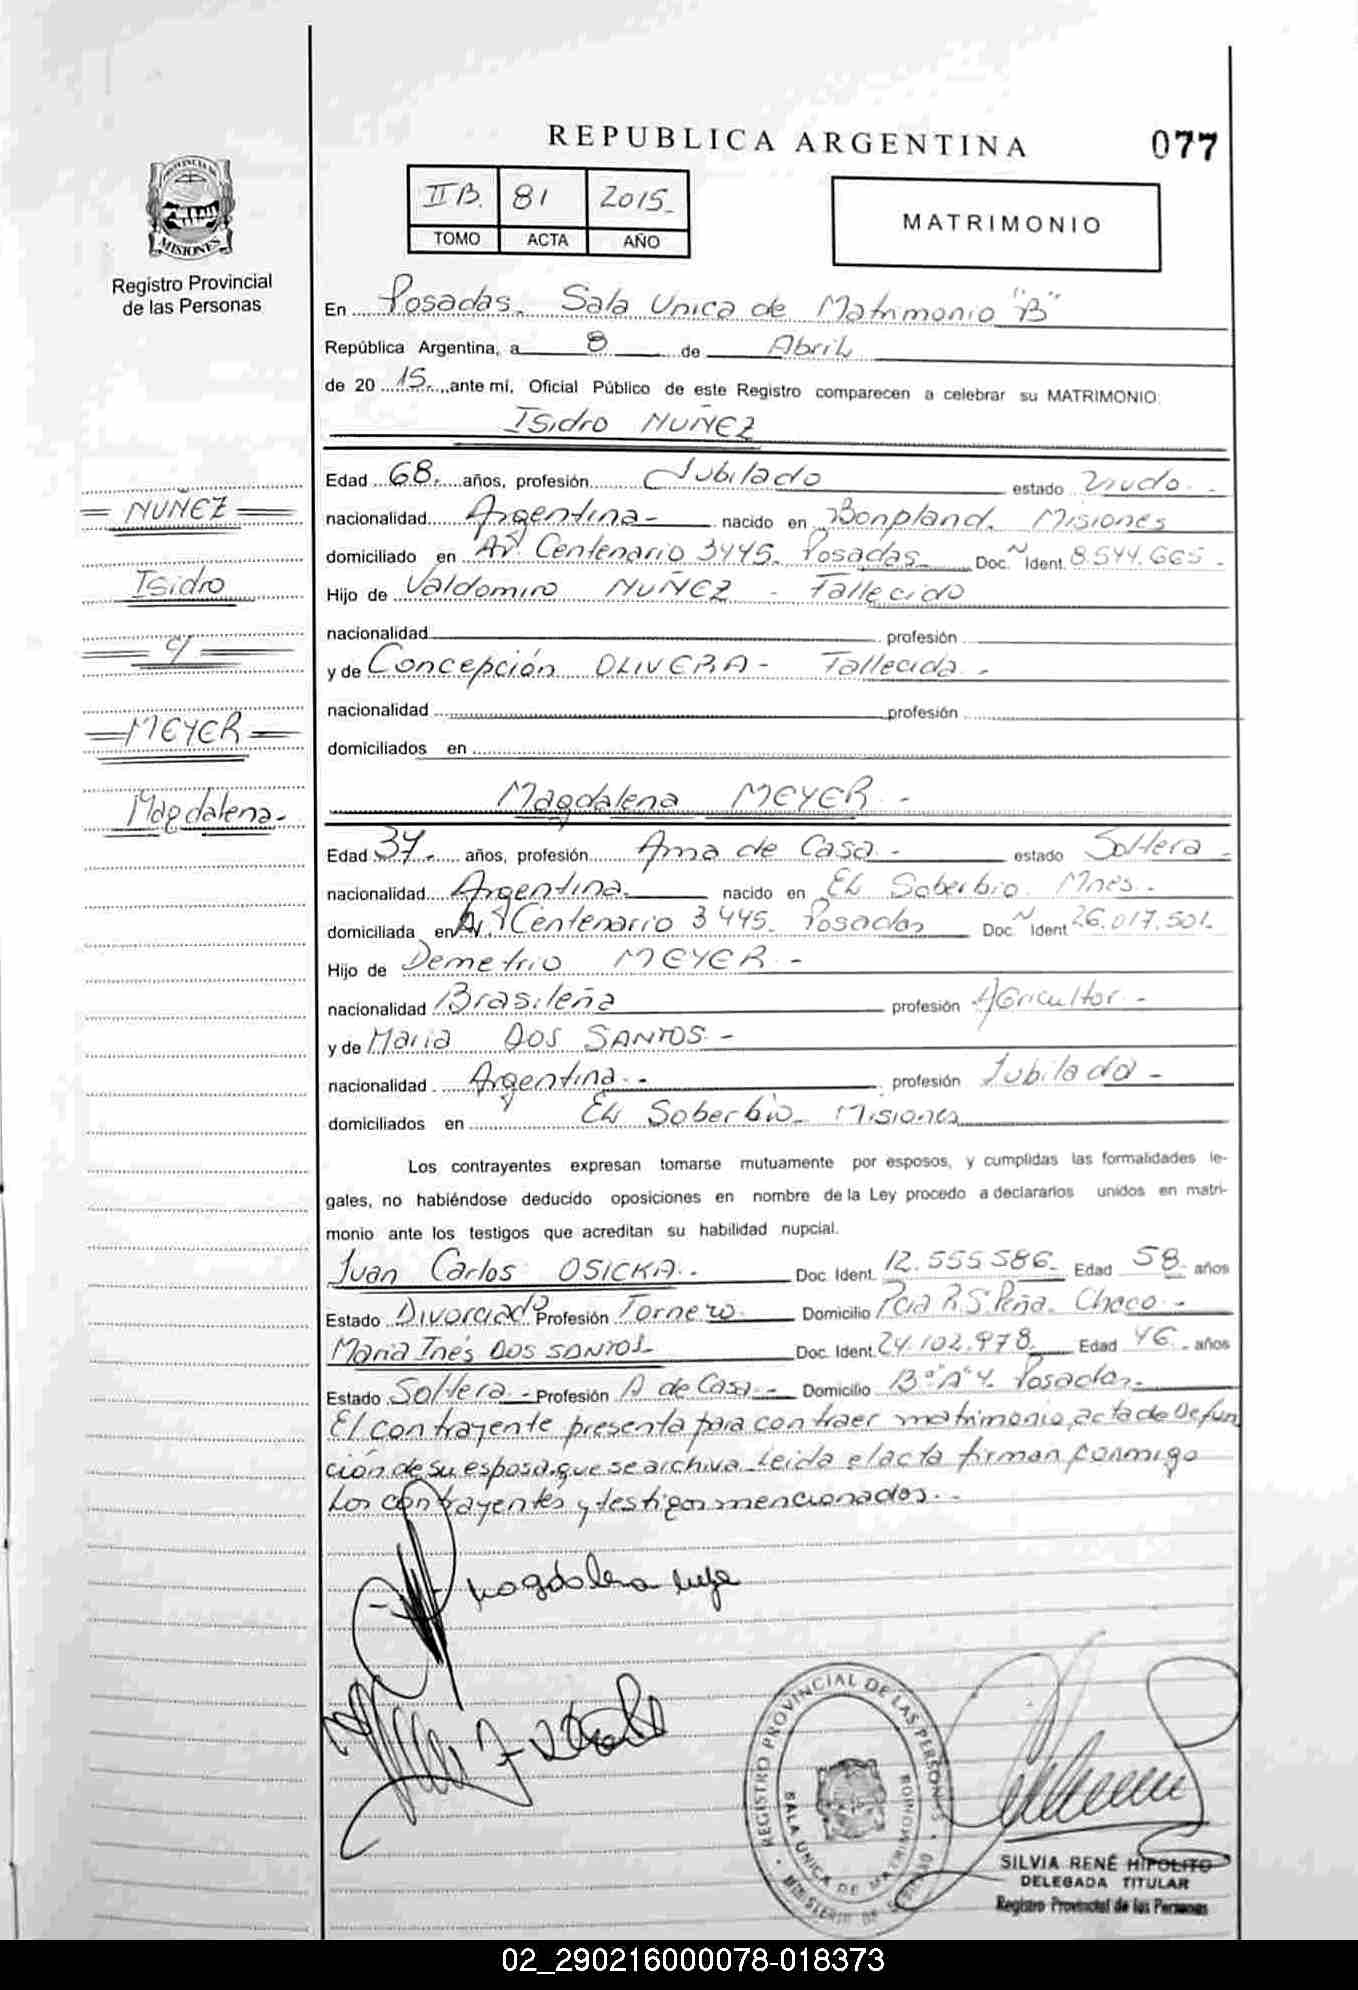 REPUBLICA ARGENTINA
077
IIB. 81 2015-
TOMO ACTA AÑO
MATRIMONIO
PROVINCIA DE
MISIONES
Registro Provincial
de las Personas
En Posadas. Sala Unica de Matrimonio "B"
República Argentina, a 8 de Abril
de 2015, ante mí, Oficial Público de este Registro comparecen a celebrar su MATRIMONIO:
Isidro NUÑEZ
Edad 68. años, profesión Jubilado estado Viudo. -
nacionalidad Argentina- nacido en Bonpland. Misiones
domiciliado en Avª. Centenario 3445. Posadas- Doc. Ident. 8.544.665-
Hijo de Valdomiro NUÑEZ - Fallecido
nacionalidad profesión
y de Concepción OLIVERA- Fallecida. -
nacionalidad profesión
domiciliados en
Magdalena MEYER -
Edad 37. años, profesión Ama de Casa - estado Soltera -
nacionalidad Argentina. nacido en El Soberbio. Mnes.
domiciliada en Avª Centenario 3445. Posadas Doc. Ident 26.017.501.
Hijo de Demetrio MEYER -
nacionalidad Brasileña profesión Agricultor -
y de Maria DOS SANTOS -
nacionalidad Argentina. - profesión Jubilada -
domiciliados en El Soberbio- Misiones
Los contrayentes expresan tomarse mutuamente por esposos, y cumplidas las formalidades le-
gales, no habiéndose deducido oposiciones en nombre de la Ley procedo a declararlos unidos en matri-
monio ante los testigos que acreditan su habilidad nupcial.
Juan Carlos OSICKA.- Doc. Ident. 12.555.586- Edad 58 años
Estado Divorciado Profesión Tornero Domicilio Pcia R.S. Peña. Chaco -
Maria Inés DOS SANTOS- Doc. Ident. 24.102.978 Edad 46 años
Estado Soltera - Profesión A de Casa. - Domicilio Bº "A" 4. Posadas.
El contrayente presenta para contraer matrimonio, acta de Defun
ción de su esposa. que se archiva. Leida el acta firman conmigo
los contrayentes y testigos mencionados. -
NUÑEZ
Isidro
c/
MEYER
Magdalena-
Magdalena
REGISTRO PROVINCIAL DE LAS PERSONAS
SALA UNICA DE MATRIMONIO
MINISTERIO DE GOBIERNO
SILVIA RENÉ HIPOLITO
DELEGADA TITULAR
Registro Provincial de las Personas
02_290216000078-018373